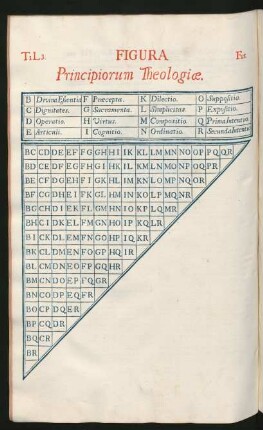 T.I.L.3. FIGURA Fo:
Principiorum Theologiæ.
B Divina Essentia F Præcepta. K Dilectio. O Suppositio.
C Dignitates. G Sacramenta. L Simplicitas P Expositio.
D Operatio. H Virtus. M Compositio. Q Prima Intentio.
E Articuli. I Cognitio. N Ordinatio. R Secunda Intentio
BC CD DE EF FG GH HI IK KL LM MN NO OP PQ QR
BD CE DF EG FH GI HK IL KM LN MO NP OQ PR
BE CF DG EH FI GK HL IM KN LO MP NQ OR
BF CG DH EI FK GL HM IN KO LP MQ NR
BG CH DI EK FL GM HN IO KP LQ MR
BH CI DK EL FM GN HO IP KQ LR
BI CK DL EM FN GO HP IQ KR
BK CL DM EN FO GP HQ IR
BL CM DN EO FP GQ HR
BM CN DO EP FQ GR
BN CO DP EQ FR
BO CP DQ ER
BP CQ DR
BQ CR
BR